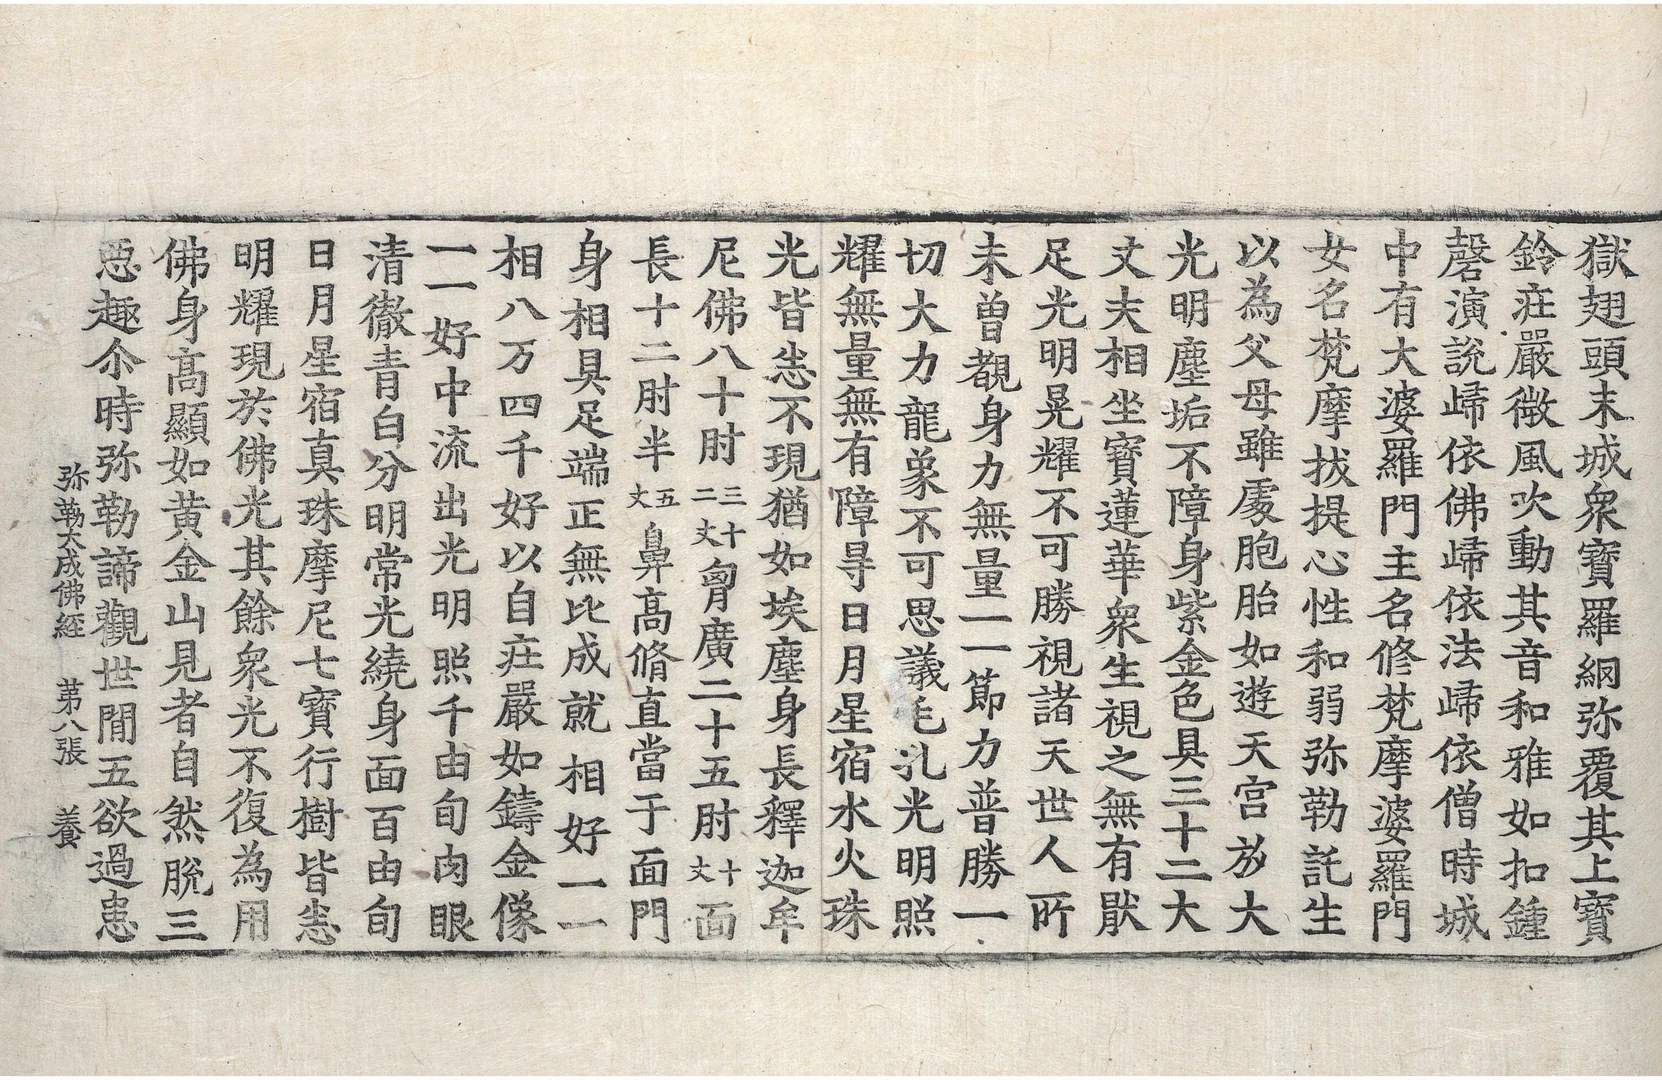 獄翅頭末城衆寶羅網弥覆其上寶
鈴莊嚴微風吹動其音和雅如扣鍾
磬演說歸依佛歸依法歸依僧時城
中有大婆羅門主名修梵摩婆羅門
女名梵摩拔提心性和弱弥勒託生
以為父母雖處胞胎如遊天宮放大
光明塵垢不障身紫金色具三十二大
丈夫相坐寶蓮華衆生視之無有猒
足光明晃耀不可勝視諸天世人所
未曾覩身力無量一一節力普勝一
切大力龍象不可思議毛孔光明照
耀無量無有障㝵日月星宿水火珠
光皆悉不現猶如埃塵身長釋迦牟
尼佛八十肘三十二丈胷廣二十五肘十丈面
長十二肘半五丈鼻高脩直當于面門
身相具足端正無比成就相好一一
相八万四千好以自莊嚴如鑄金像
一一好中流出光明照千由旬肉眼
清徹青白分明常光繞身面百由旬
日月星宿真珠摩尼七寶行樹皆悉
明耀現於佛光其餘衆光不復為用
佛身高顯如黃金山見者自然脫三
惡趣尒時弥勒諦觀世間五欲過患
弥勒大成佛経 第八張 養